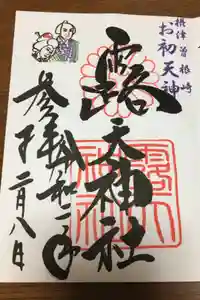 摂津曽根崎
お初天神
露天神社
令和二年
二月八日
参拝